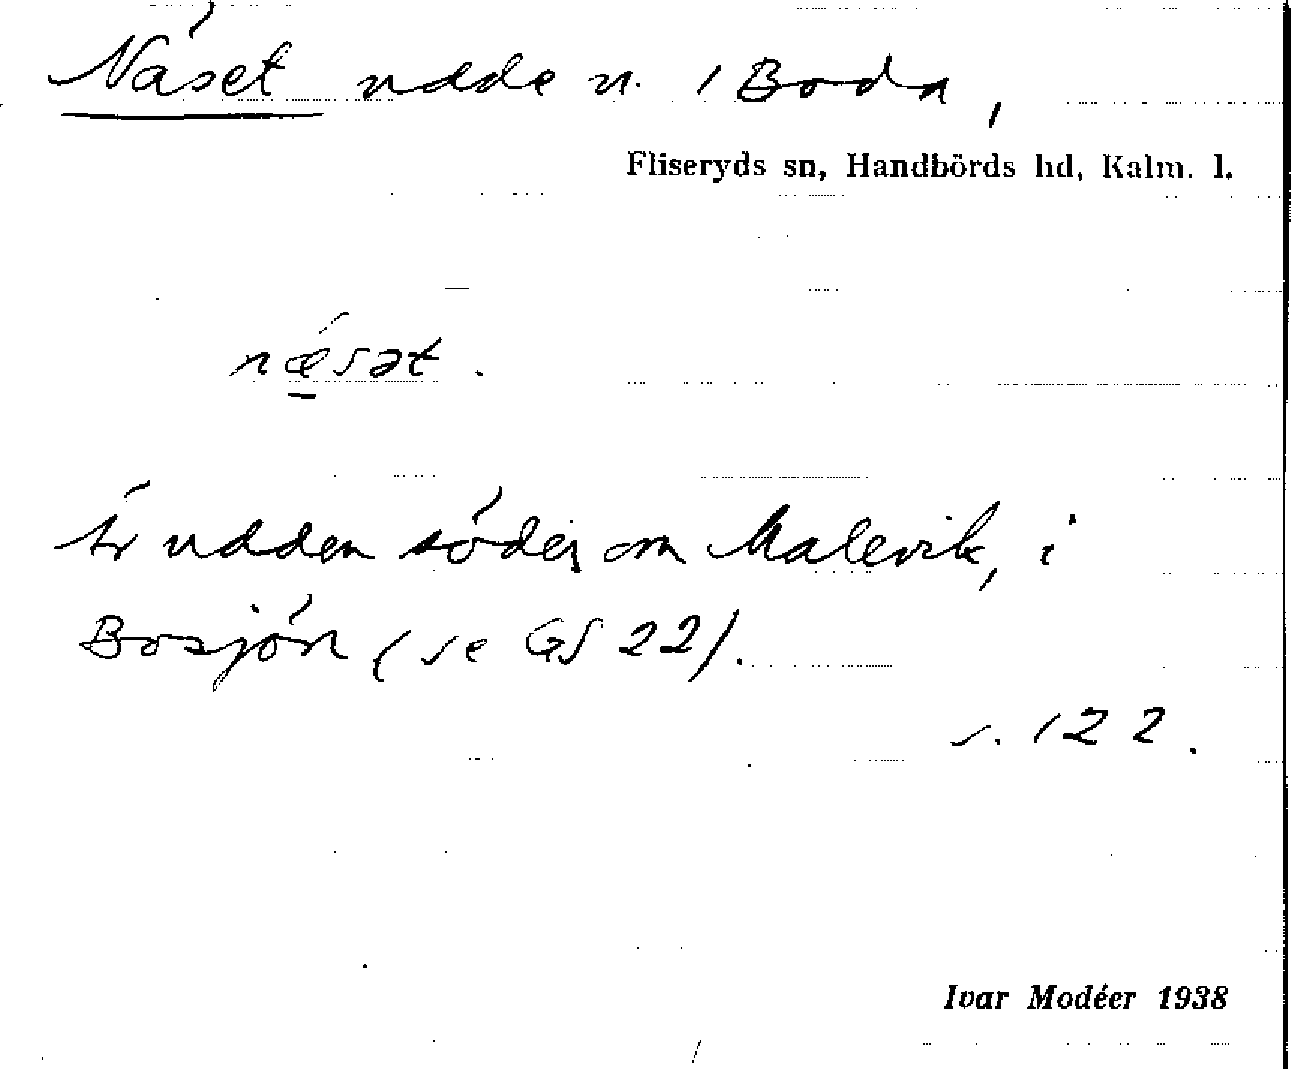 Näset udde n. / Boda,
Fliseryds sn, Handbörds hd, Kalm. l.
nǽ̱sət.
Är udden söder om Malevik, i
Bosjön (se GS 22).
s. 122.
Ivar Modéer 1938